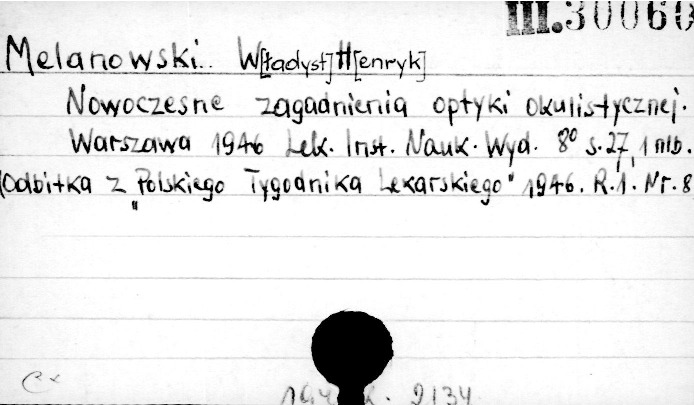 III.30060
Melanowski W[ładysł] H[enryk]
Nowoczesne zagadnienia optyki okulistycznej.
Warszawa 1946 Lek. Inst. Nauk. Wyd. 8° s. 27, 1 nlb.
(Odbitka z „Polskiego Tygodnika Lekarskiego" 1946. R.1. Nr. 8
2134